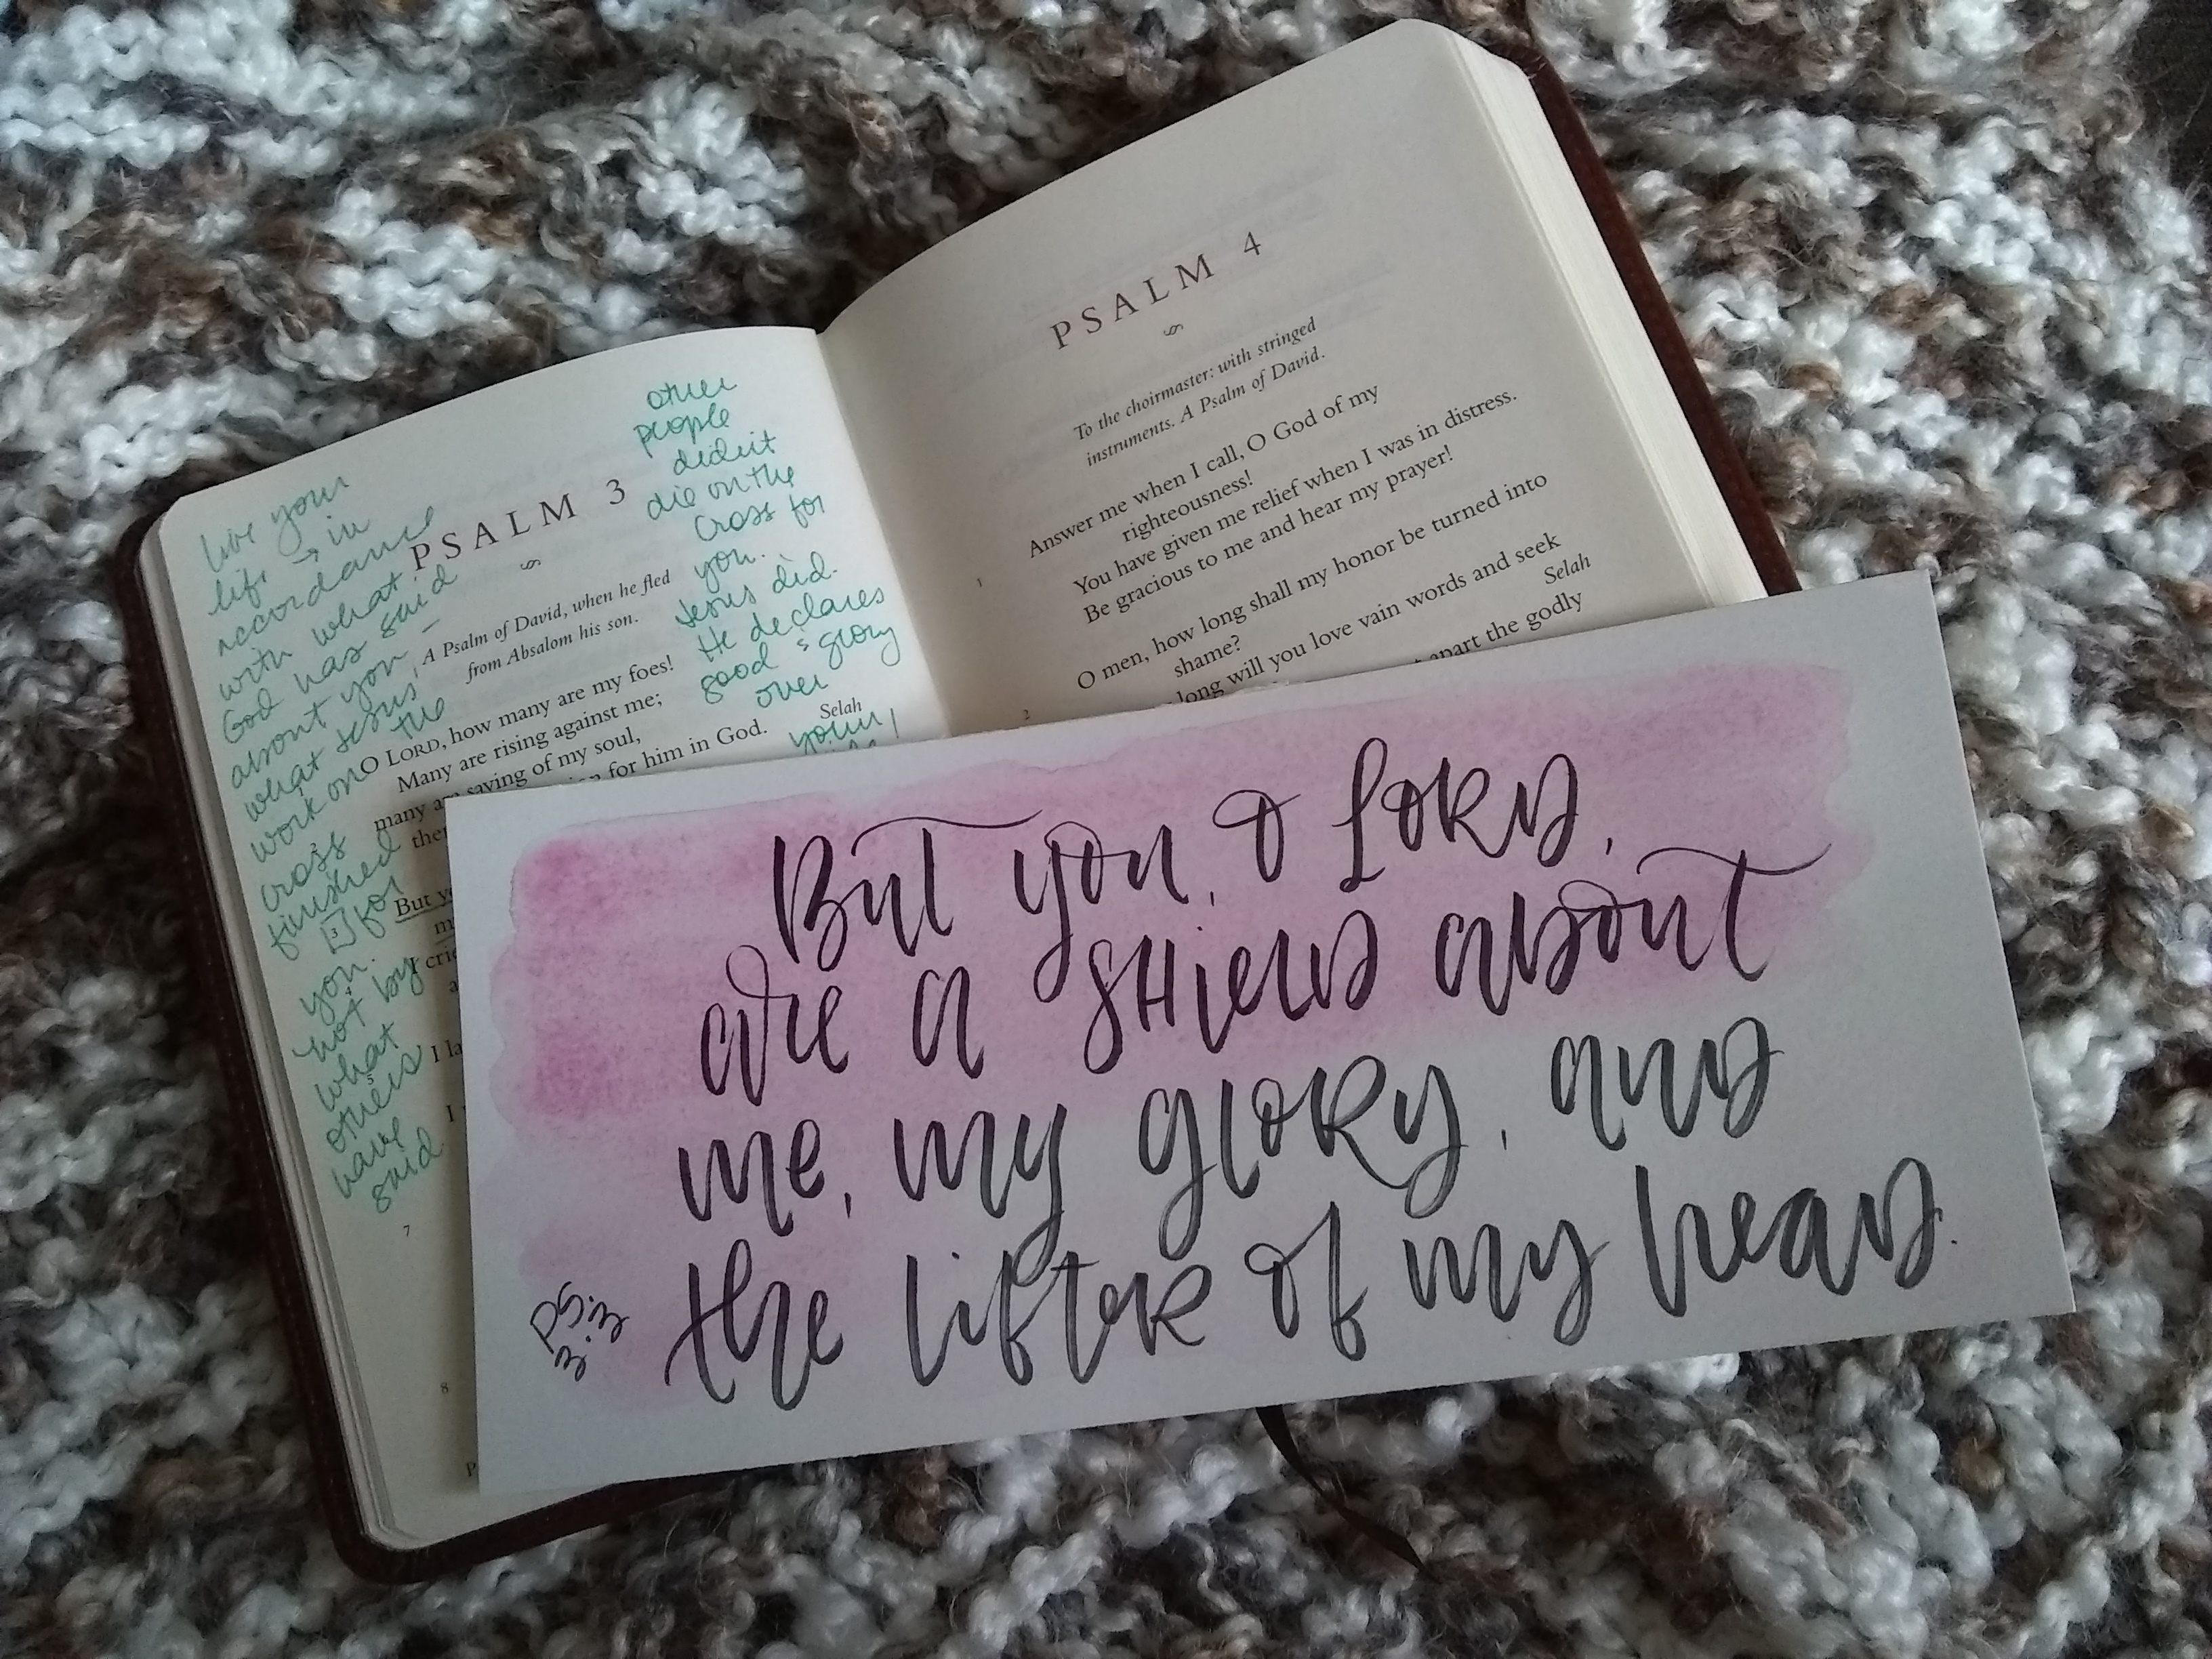 live your
life → in
accordance
with what
God has said
about you –
what Jesus'
work on the
cross
finished
for
you.
not by
what
others
have
said
PSALM 3
A Psalm of David, when he fled
from Absalom his son.
O LORD, how many are my foes!
Many are rising against me;
many are saying of my soul,
for him in God.
Selah
2
3
But
4
5
I
7
8
other
people
didn't
die on the
Cross for
you.
Jesus did.
He declares
good & glory
over
your
PSALM 4
To the choirmaster: with stringed
instruments. A Psalm of David.
1 Answer me when I call, O God of my
righteousness!
You have given me relief when I was in distress.
Be gracious to me and hear my prayer!
2 O men, how long shall my honor be turned into
shame?
long will you love vain words and seek
Selah
apart the godly
But you, O Lord,
are a shield about
me, my glory, and
the lifter of my head.
PS.
3:3